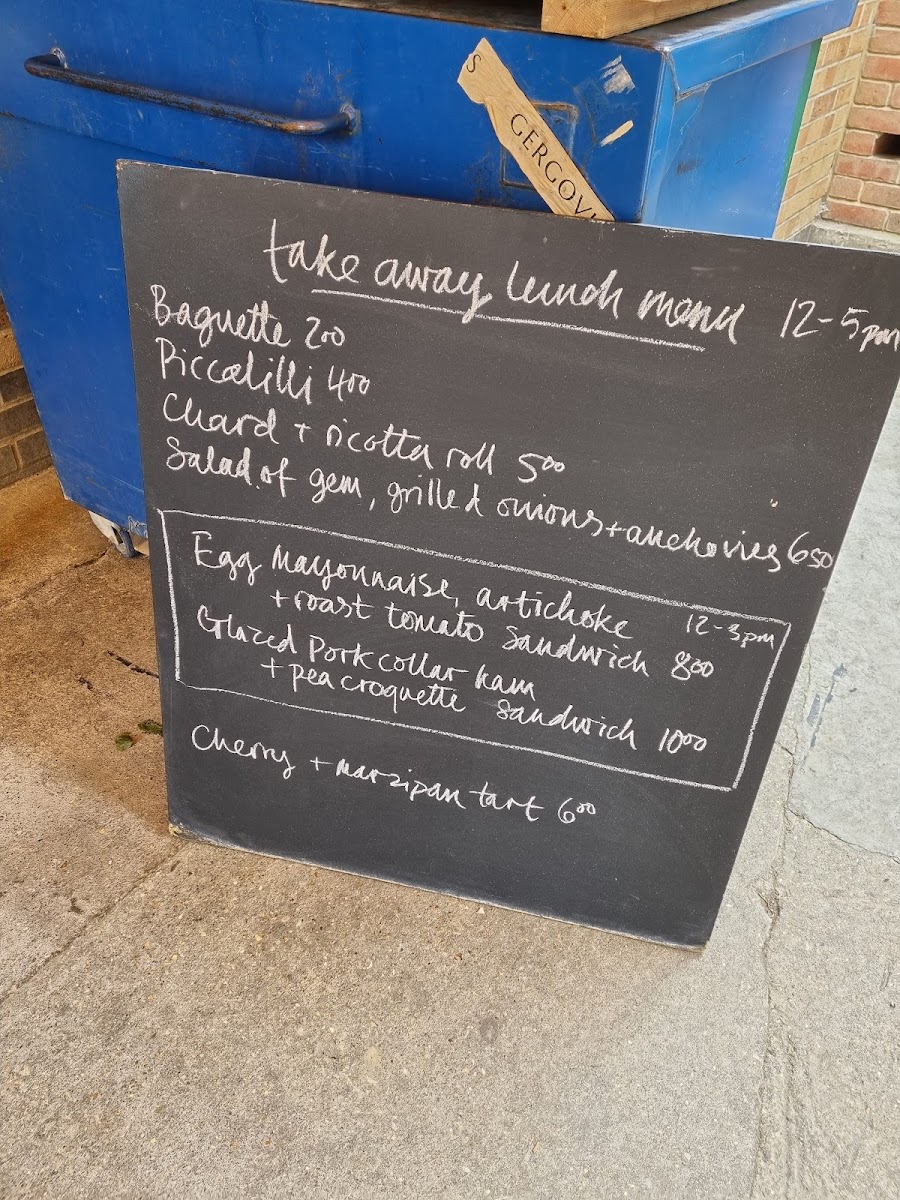 S
GERGOVI
take away lunch menu 12-5pm
Baguette 200
Piccalilli 400
Chard + ricotta roll 500
Salad of gem, grilled onions + anchovies 650
Egg Mayonnaise, artichoke 12-3pm
+ roast tomato Sandwich 800
Glazed Pork collar ham
+ pea croquette Sandwich 1000
Cherry + marzipan tart 600